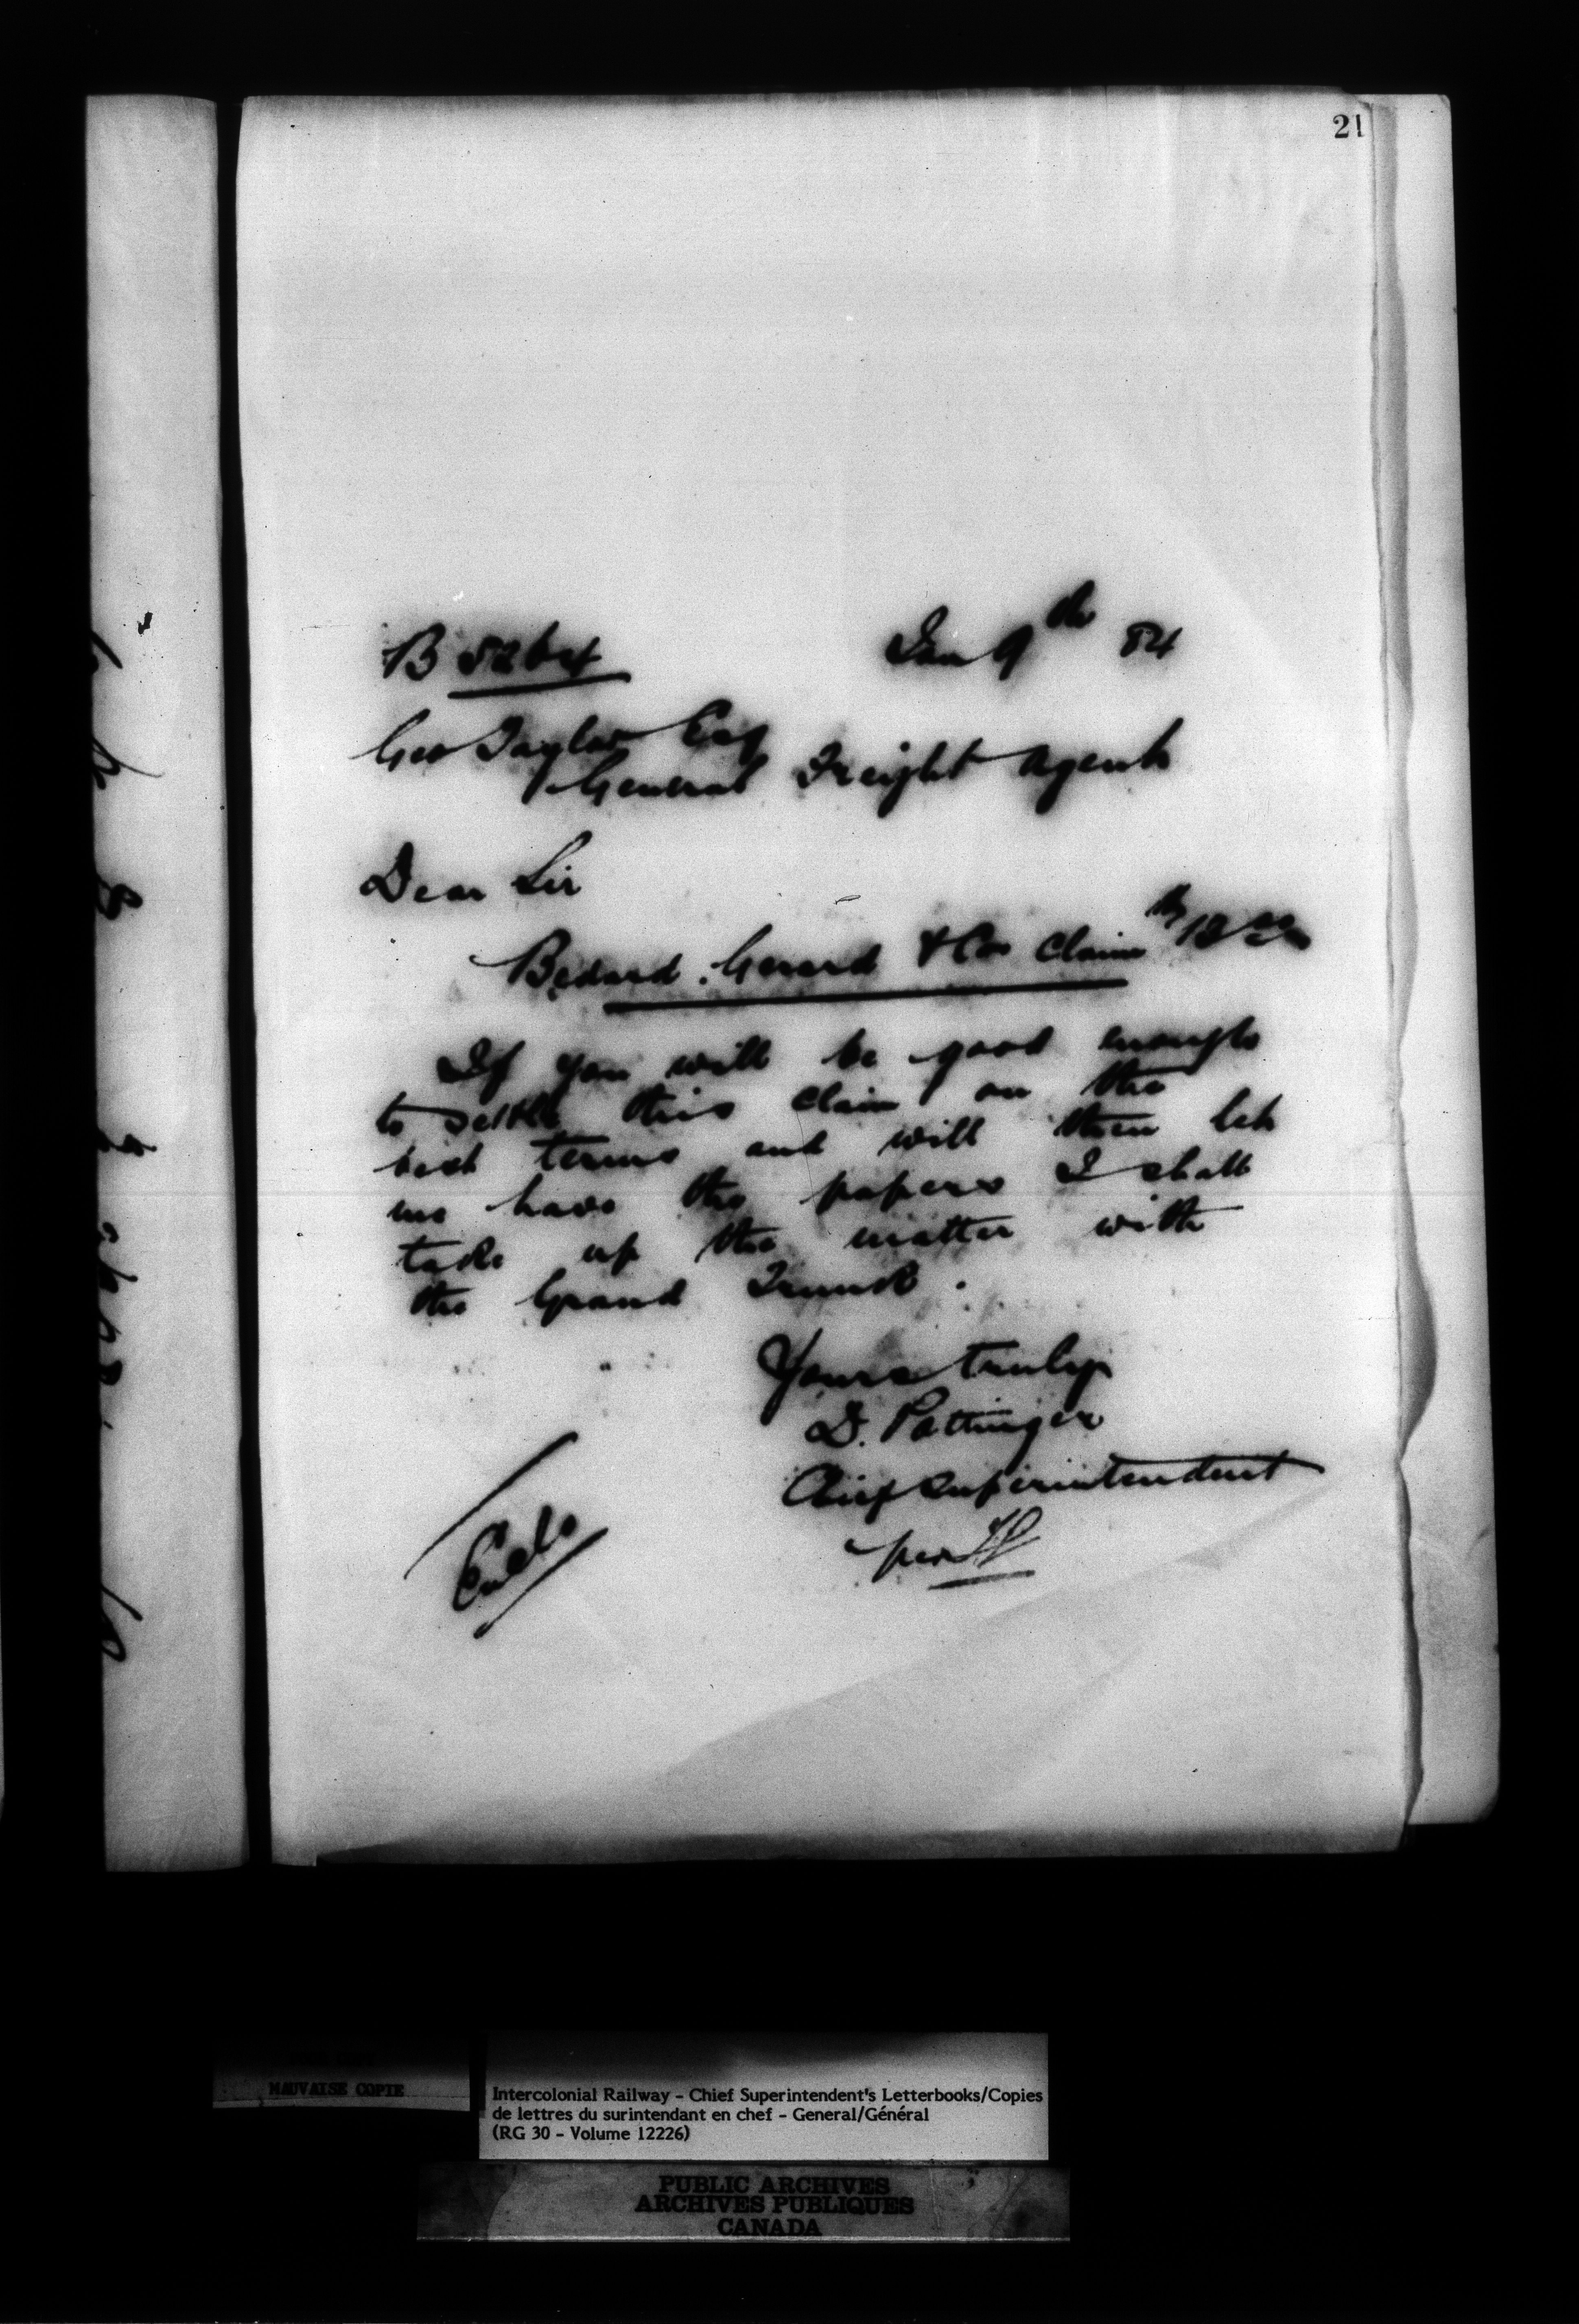 21
B 5264
Jan 9th 84
Geo Taylor Esq
General Freight Agent
Dear Sir
Bedard. Gerard & Co Claim 12
If you will be good enough
to settle this claim on the
best terms and will then let
me have the papers I shall
take up the matter with
the Grand Trunk.
Yours truly
D. Pottinger
Chief Superintendent
per
Encls
MAUVAISE COPIE
Intercolonial Railway - Chief Superintendent's Letterbooks/Copies
de lettres du surintendant en chef - General/Général
(RG 30 - Volume 12226)
PUBLIC ARCHIVES
ARCHIVES PUBLIQUES
CANADA